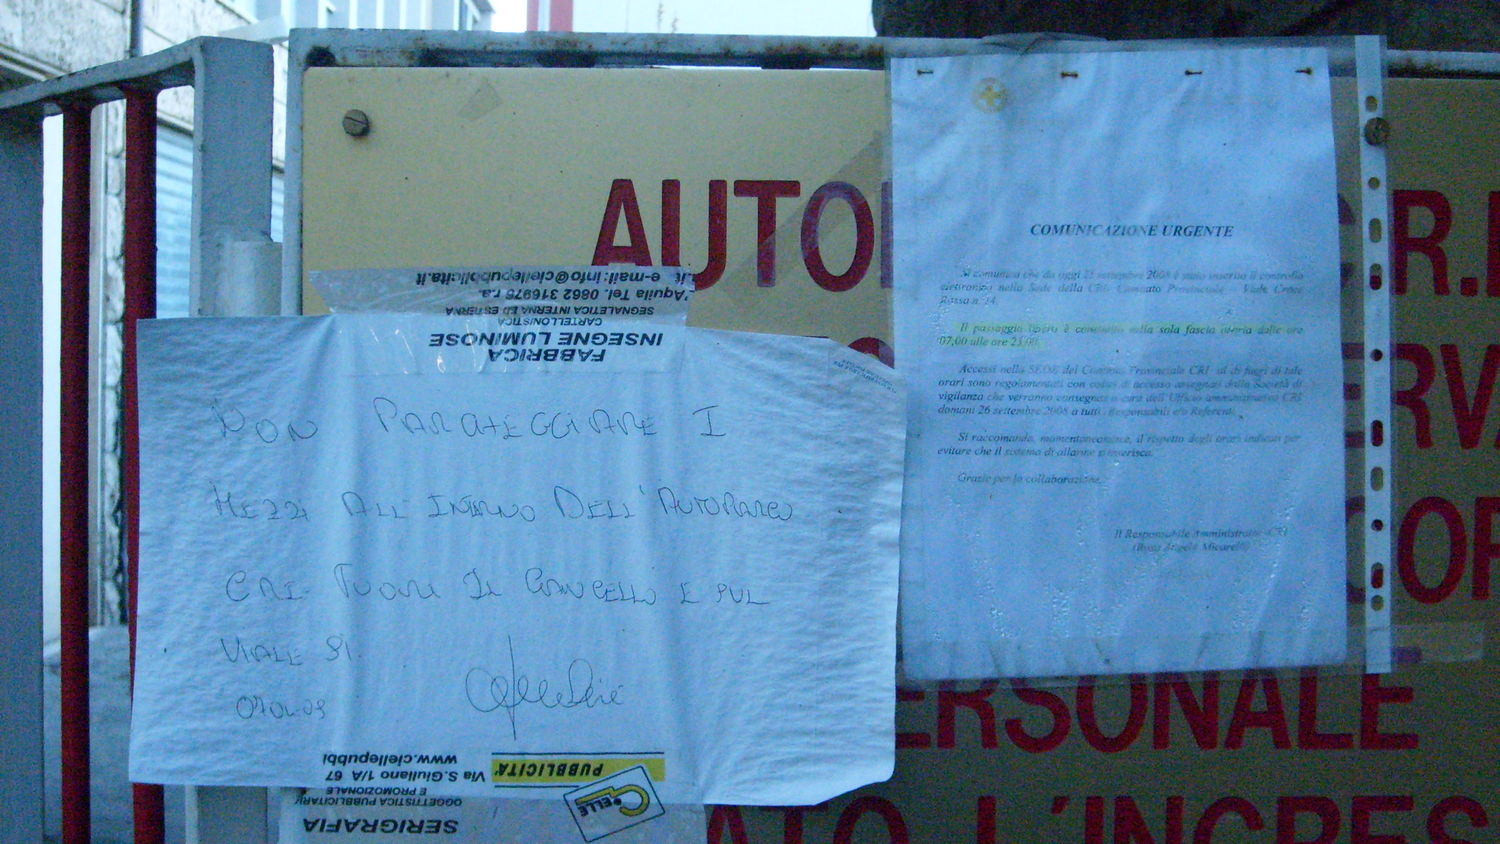 AUTO
C.R.I
ERVA
COR
PERSONALE
ATO L'INGRES
.it e-mail:info@ciellepubblicita.it
'Aquila Tel. 0862 316975 r.a.
SEGNALETICA INTERNA ED ESTERNA
CARTELLONISTICA
INSEGNE LUMINOSE
FABBRICA
NON PARCHEGGIARE I
MEZZI ALL'INTERNO DELL'AUTOPARCO
CRI. FUORI IL CANCELLO E SUL
VIALE SI.
07.04.09
www.ciellepubbl
Via S.Giuliano 1/A 67
PUBBLICITÀ
CIELLE
E PROMOZIONALE
OGGETTISTICA PUBBLICITARI
SERIGRAFIA
COMUNICAZIONE URGENTE
Si comunica che da oggi 25 settembre 2008 è stato inserito il controllo
elettronico nella Sede della CRI Comitato Provinciale - Viale Croce
Rossa n. 14.
Il passaggio libero è consentito nella sola fascia oraria dalle ore
07,00 alle ore 23,00.
Accessi nella SEDE del Comitato Provinciale CRI al di fuori di tale
orari sono regolamentati con codici di accesso assegnati dalla Società di
vigilanza che verranno consegnati a cura dell'Ufficio amministrativo CRI
domani 26 settembre 2008 a tutti i Responsabili e/o Referenti.
Si raccomanda, momentaneamente, il rispetto degli orari indicati per
evitare che il sistema di allarme si inserisca.
Grazie per la collaborazione.
Il Responsabile Amministrativo CRI
(Rosa Angela Micarelli)